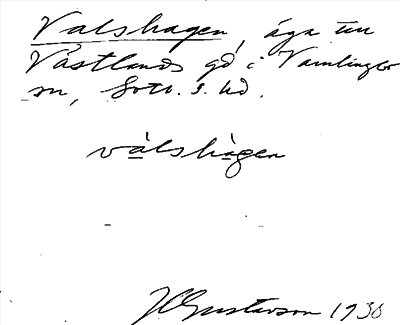 Valshagen, äga till
Västlands gd i Vamlingbo
sn, Gotl. s. hd.
vàlshàgen
H Gustavson 1930